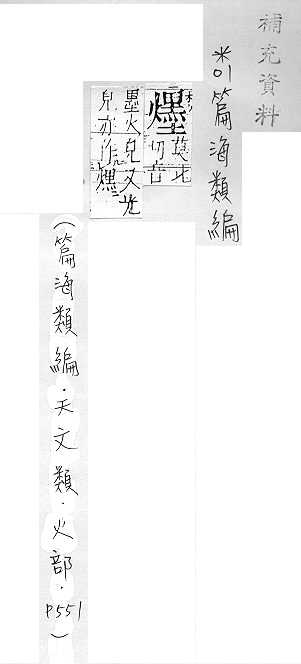 補充資料
※01篇海類編
爅莫北
切音
墨火兒又光
兒亦作
（篇海類編．天文類．火部．P551）